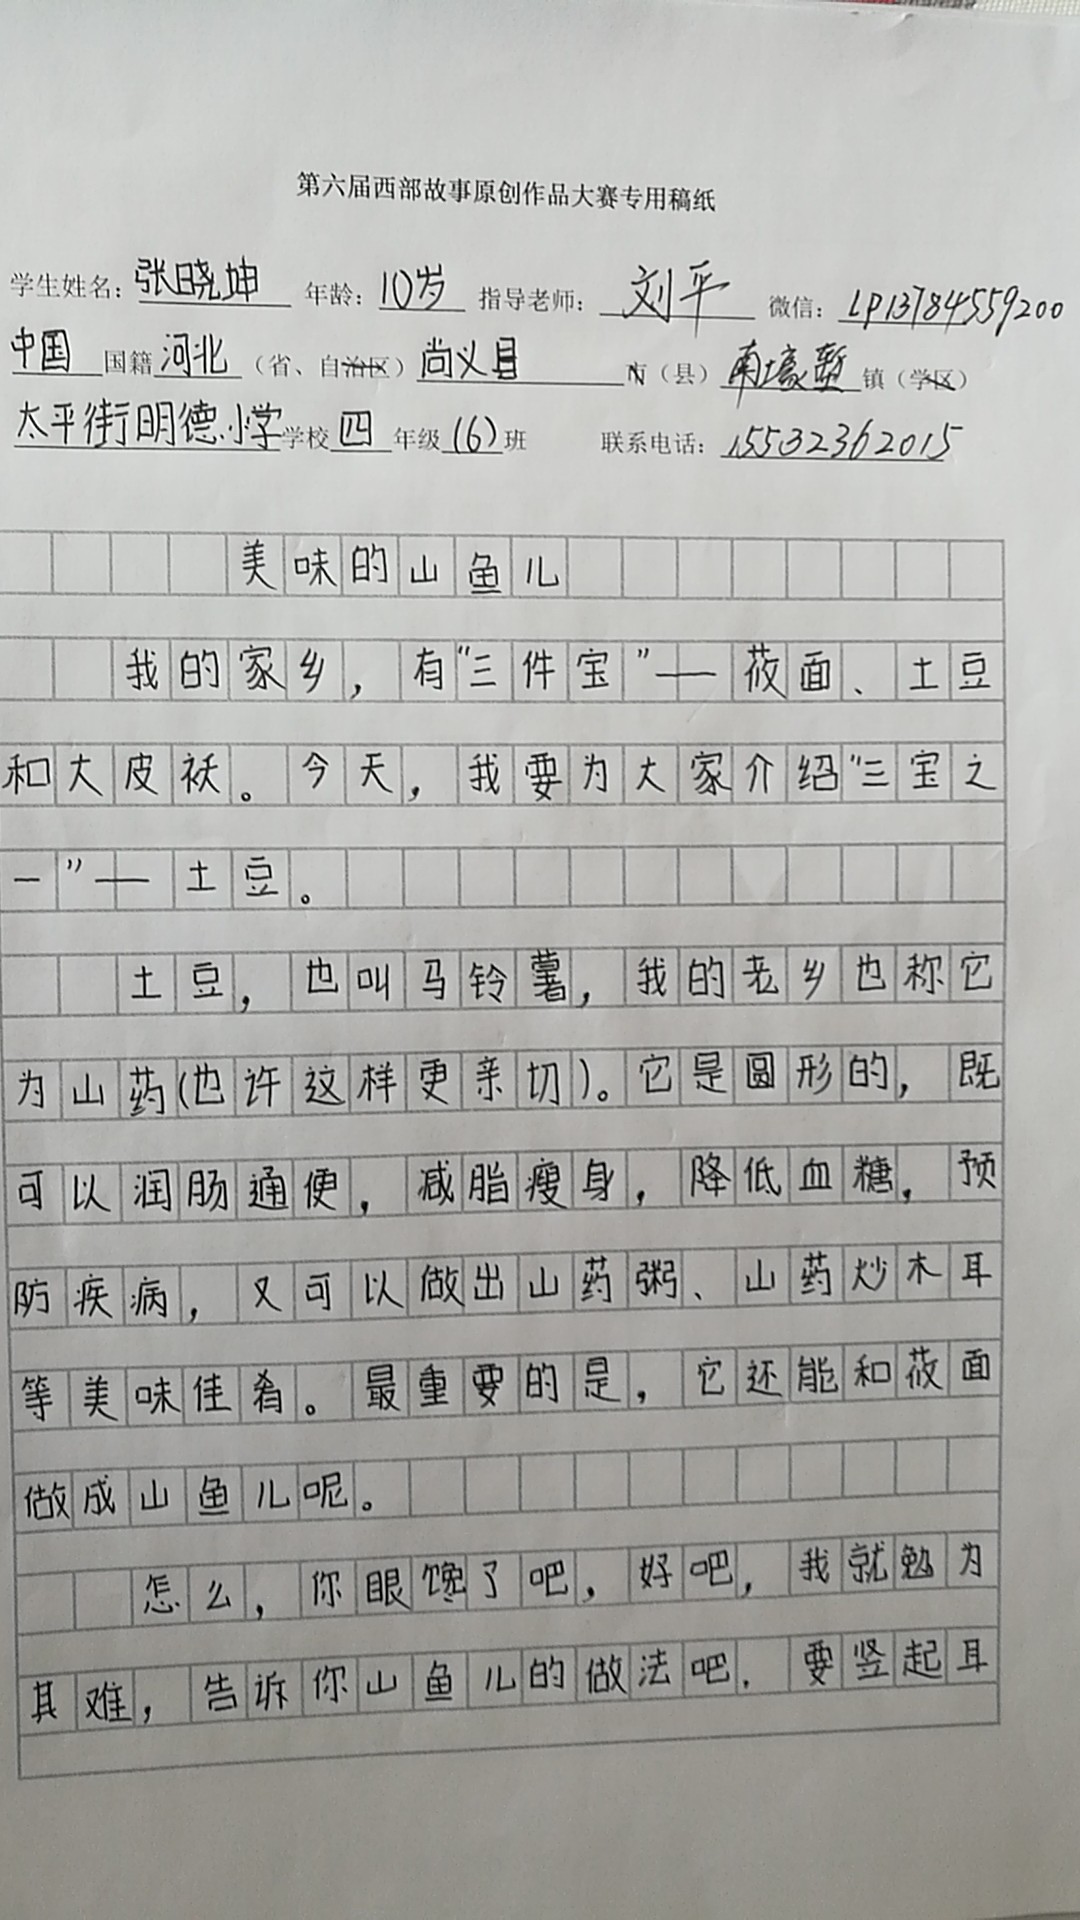 第六届西部故事原创作品大赛专用稿纸
学生姓名：张晓坤 年龄：10岁 指导老师：刘平 微信：LP13784559200
中国国籍河北（省、自治区）尚义县市（县）南壕堑镇（学区）
太平街明德小学学校四年级(6)班 联系电话：15532362015
美味的山鱼儿
我的家乡，有“三件宝”——莜面、土豆
和大皮袄。今天，我要为大家介绍“三宝之
一”——土豆。
土豆，也叫马铃薯，我的老乡也称它
为山药(也许这样更亲切)。它是圆形的，既
可以润肠通便，减脂瘦身，降低血糖，预
防疾病，又可以做出山药粥、山药炒木耳
等美味佳肴。最重要的是，它还能和莜面
做成山鱼儿呢。
怎么，你眼馋了吧，好吧，我就勉为
其难，告诉你山鱼儿的做法吧．要竖起耳